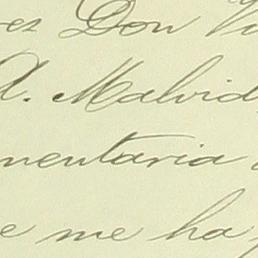 es Don Vi
A. Malvid
mentaria
e me ha